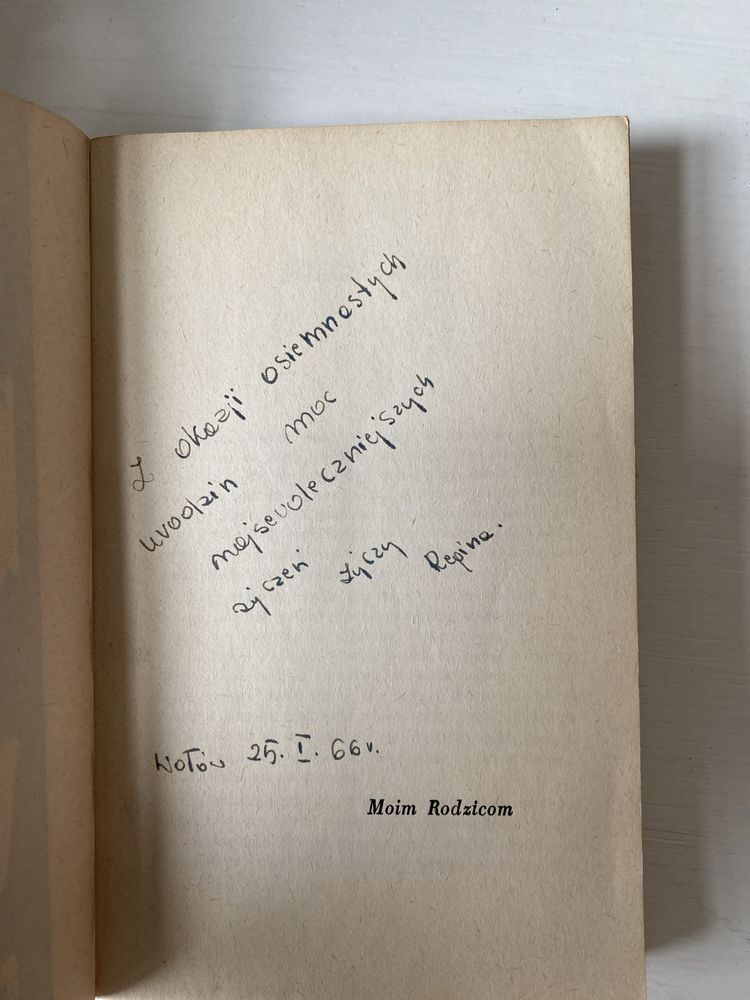 Z okazji osiemnastych
urodzin moc
najserdeczniejszych
życzeń życzy Regina.
Wołów 25. I. 66r.
Moim Rodzicom